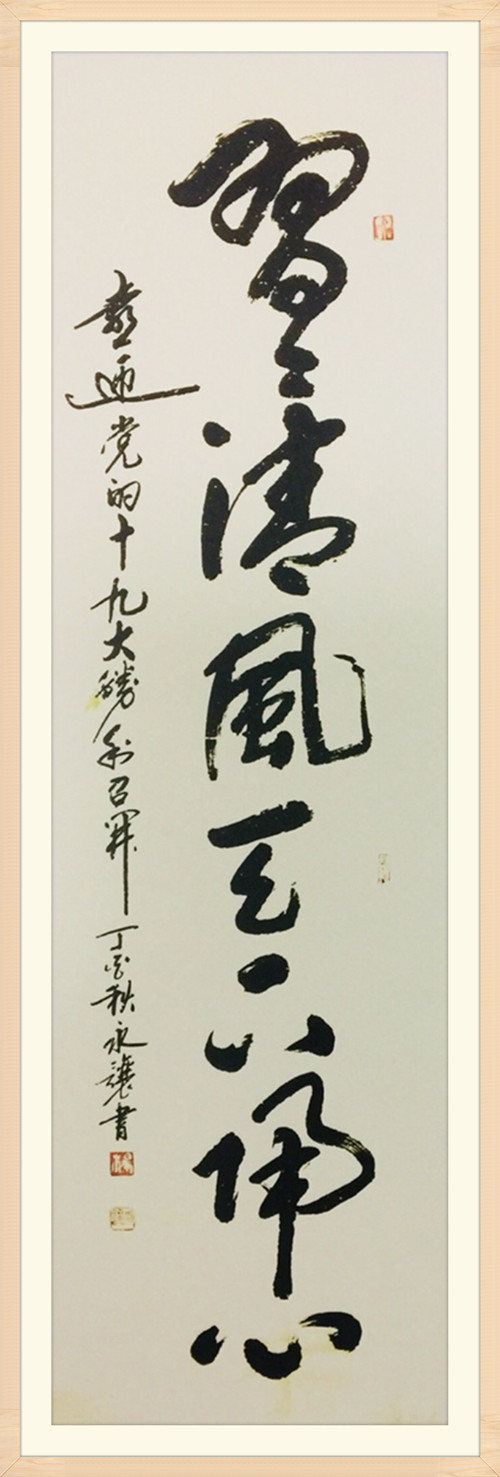 習習清風天下佩心
喜迎党的十九大勝利召開 丁酉秋永讓書